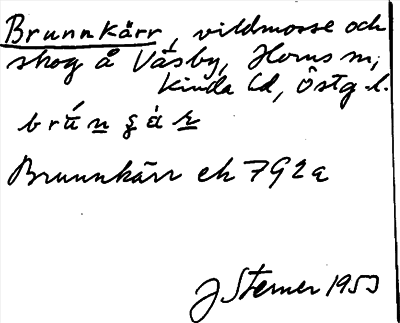 Brunnkärr, vildmosse och
skog å Väsby, Horns sn,
Kinda hd, Östg. l.
brúnʂàr
Brunnkärr ek 792a
J Sterner 1953